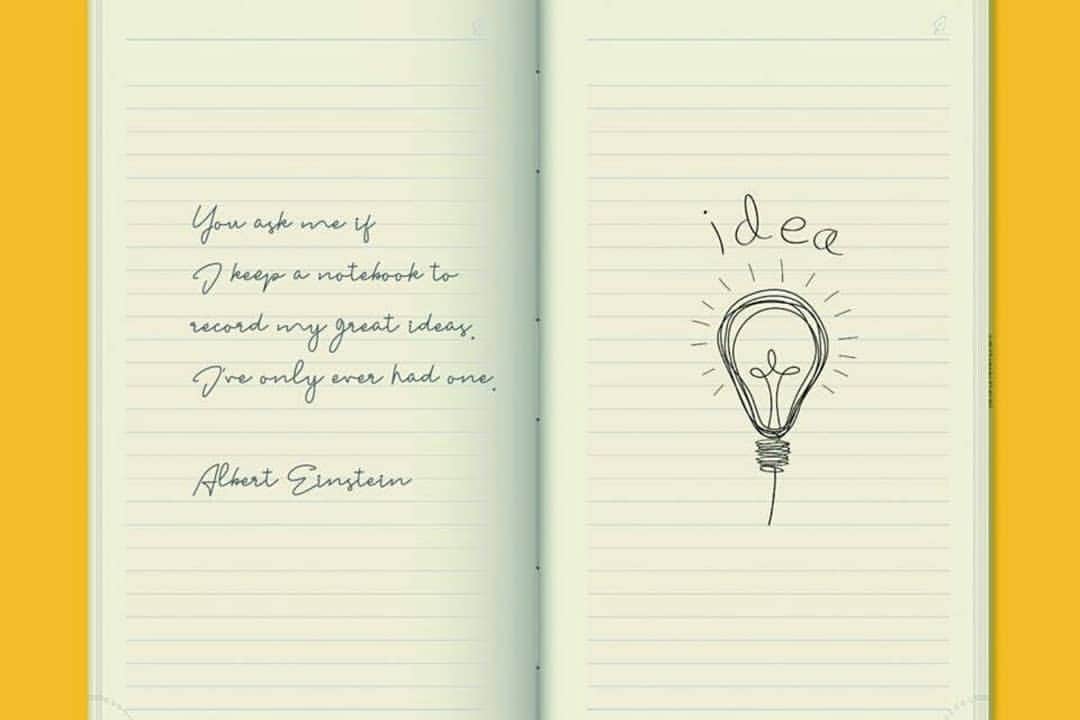 You ask me if
I keep a notebook to
record my great ideas.
I've only ever had one.
Albert Einstein
idea